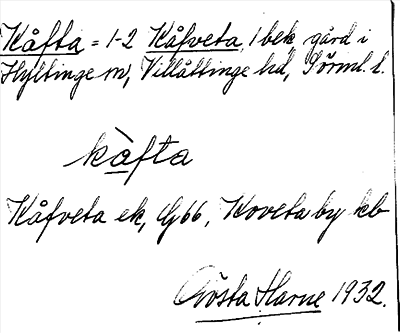 Kåfta = 1-2 Kåfveta, 1 bek. gård i
Hyltinge sn, Villåttinge hd, Sörml. l.
kȧfta
Kåfveta ek, Gj 66, Koveta by kb
Gösta Harne 1932.